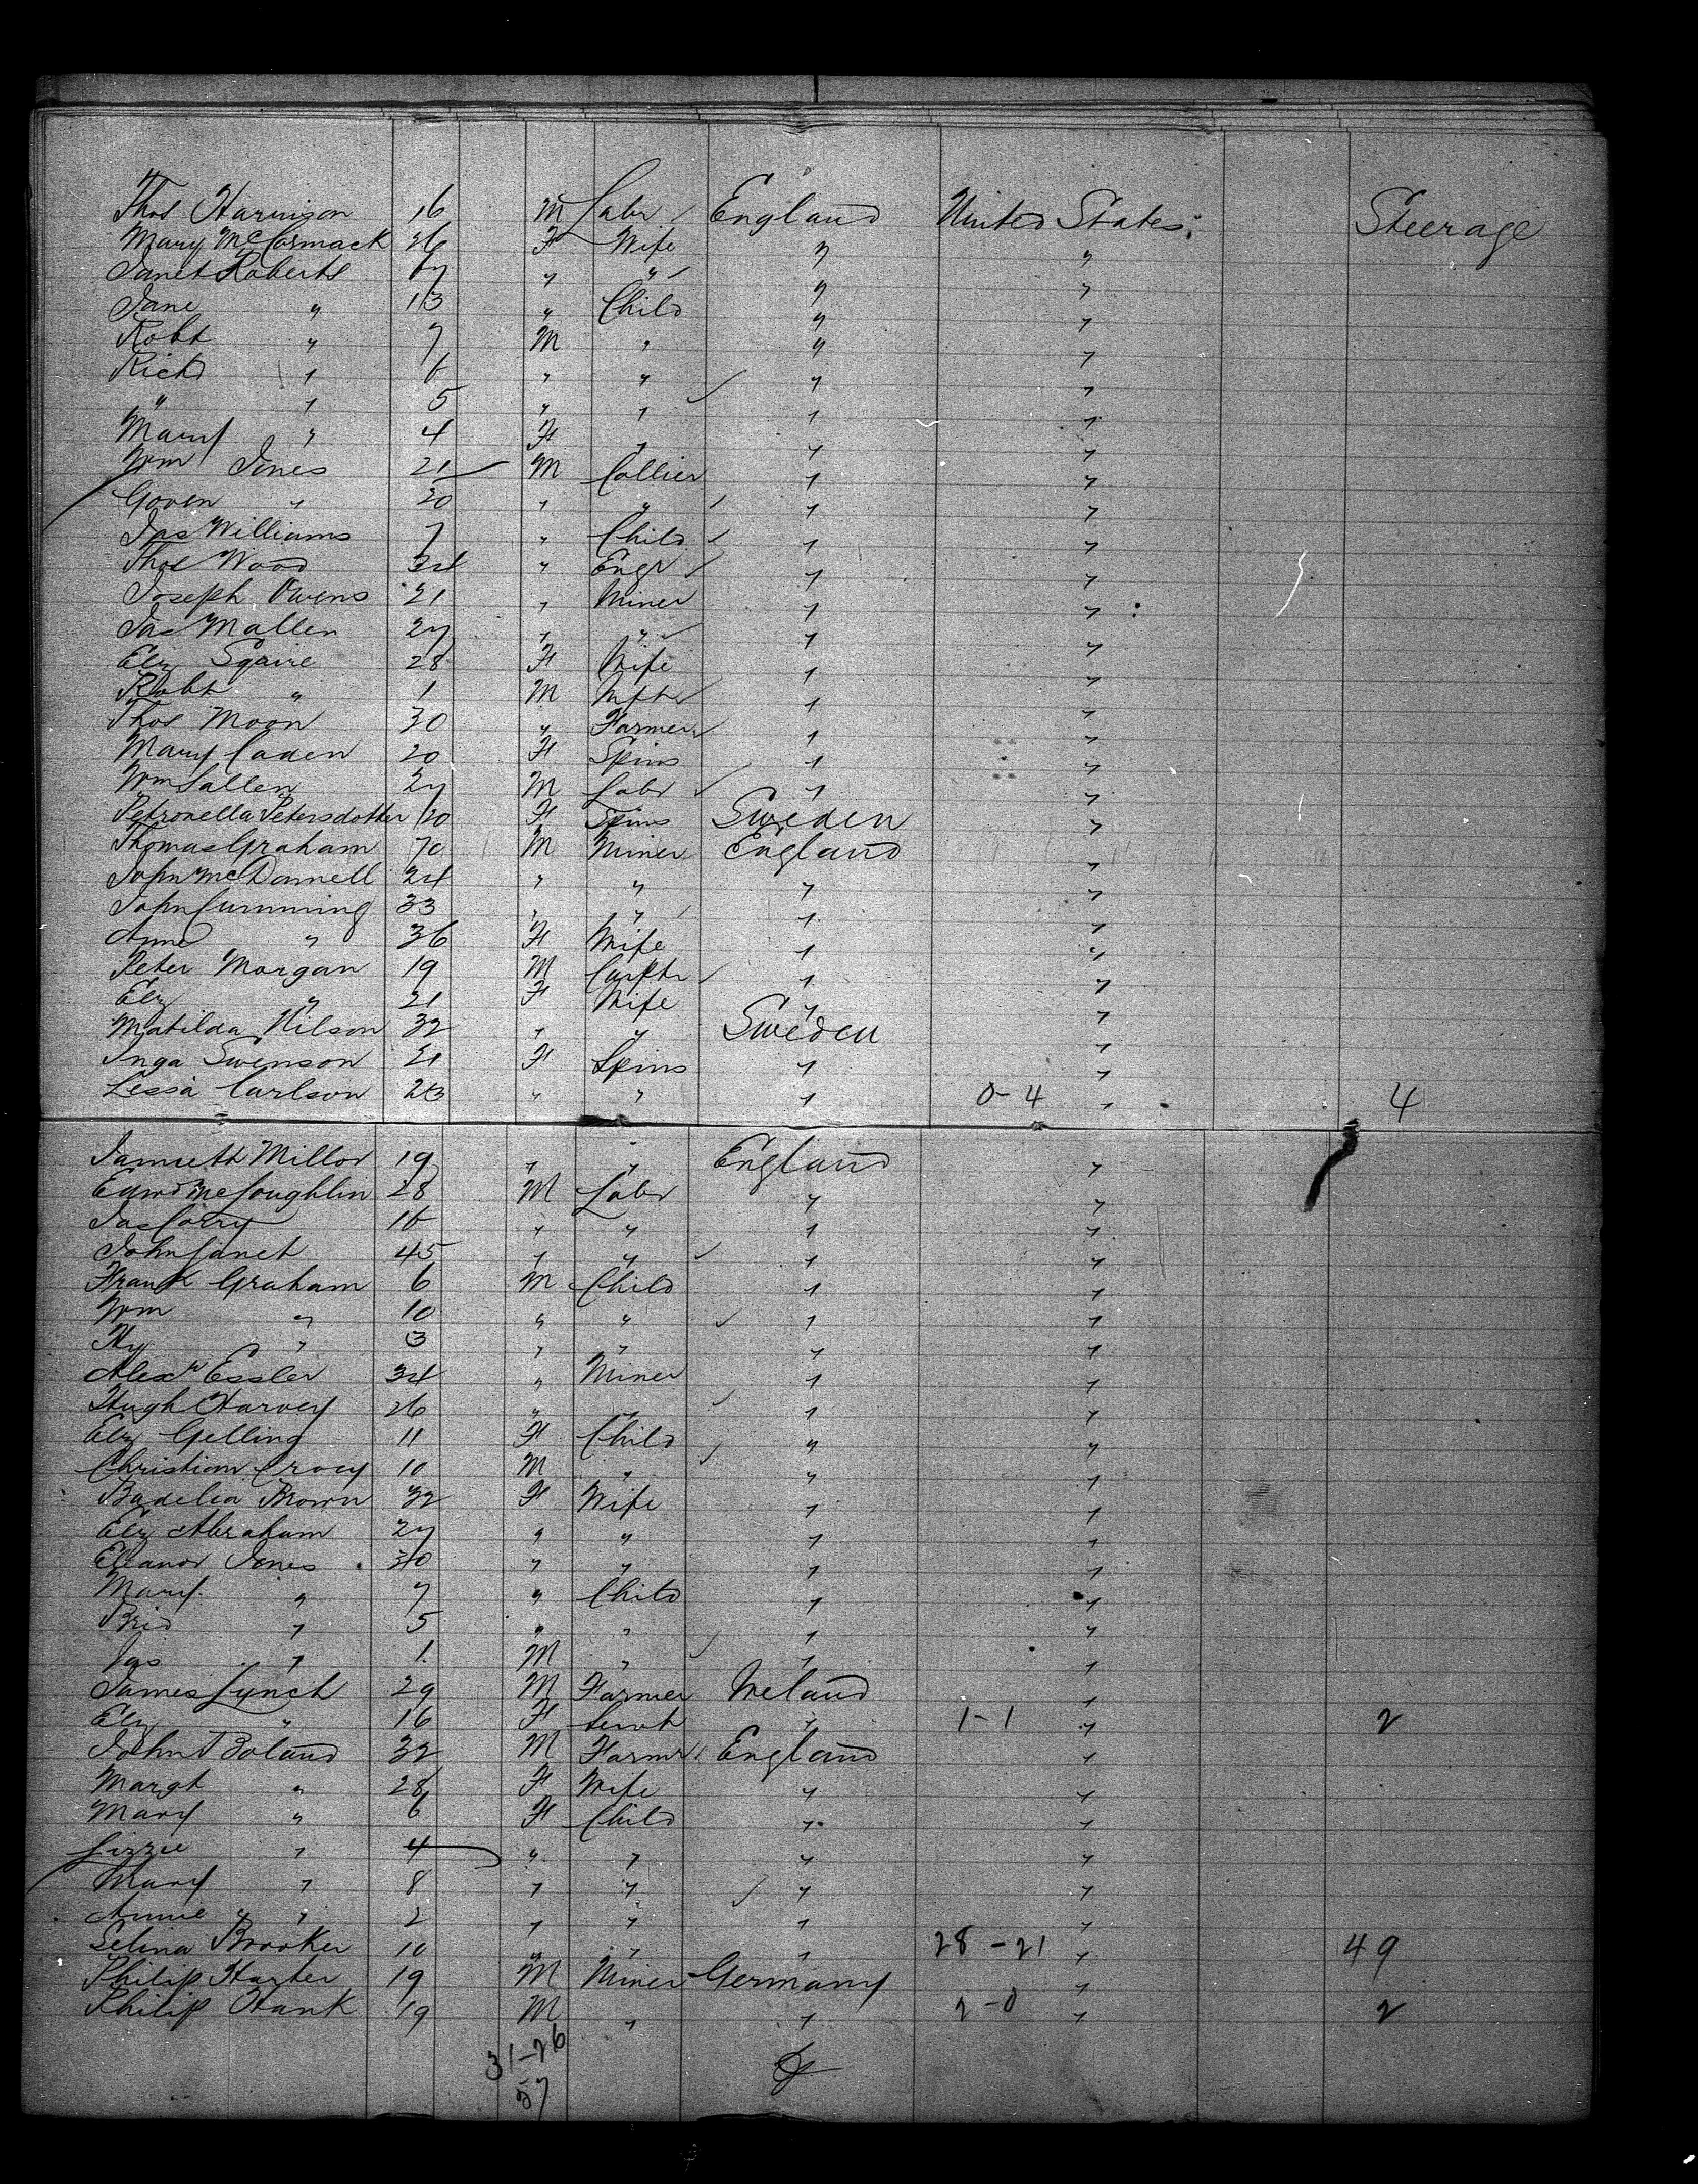 Thos Harrison 16 M Labr England United States. Steerage
Mary McCormack 26 F Wife " "
Janet Roberts " " " "
Jane " 13 " Child " "
Robt " 7 M " " "
Richd " 6 " " " "
" " 5 " " " "
Mary " 4 F " " "
Wm Jones 21 M Collier " "
Goven " 20 " " " "
Jas Williams 7 " Child " "
Thos Wood 34 " Engr " "
Joseph Owens 21 " Miner " "
Jas Mallen 27 " " " "
Elz Sqaire 28 F Wife " "
Robt " 1 M Inft " "
Thos Moon 30 " Farmer " "
Mary Caden 20 F Spins " "
Wm Sallen 27 M Labr " "
Petronella Petersdotter 20 F Spins Sweden "
Thomas Graham 70 M Miner England "
John McDonnell 24 " " " "
John Cumming 33 " " " "
Anne " 36 F Wife " "
Peter Morgan 19 M Carptr " "
Elz " 21 F Wife " "
Matilda Nilson 32 " " Sweden "
Inga Swenson 21 F Spins " "
Lessa Carlson 23 " " " 0-4 " 4
Millor 19 " " England "
Edwd McLoughlin 28 M Labr " "
Jas Corry 16 " " " "
John Janet 45 " " " "
Frank Graham 6 M Child " "
Wm " 10 " " " "
Hy " 3 " " " "
Alexr Essler 34 " Miner " "
Hugh Harvey 26 " " " "
Elz Gelling 11 F Child " "
Christian Crocy 10 M " " "
Badelia Brown 32 F Wife " "
Elz Abraham 27 " " " "
Eleanor Jones 30 " " " "
Mary " 7 " Child " "
Brid " 5 " " " "
Jas " 1 M " " "
James Lynch 29 M Farmer Ireland "
Elz " 16 F Servt " 1-1 " 2
John Boland 32 M Farmr England "
Margt " 28 F Wife " "
Mary " 6 F Child " "
Lizzie " 4 " " " "
Mary " 8 " " " "
Annie " " 2 " " " "
Selina Brooker 10 " " " 28-21 " 49
Philip Harter 19 M Miner Germany "
Philip Hank 19 M " " 2-0 " 2
31-26
57